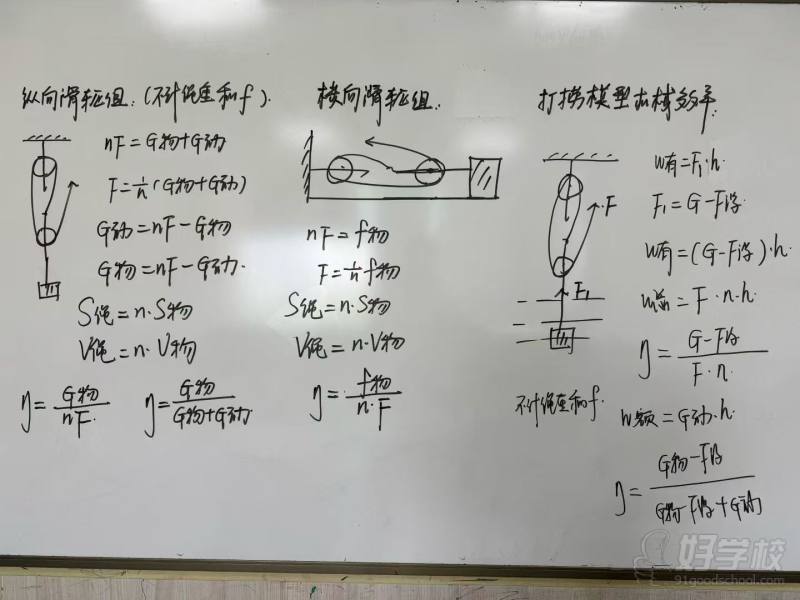 纵向滑轮组. (不计绳重和f).
nF = G物+G动
F = 1/n (G物+G动)
G动 = nF - G物
G物 = nF - G动.
S绳 = n·S物
V绳 = n·V物
η = G物/nF.
η = G物/G物+G动.
横向滑轮组.
nF = f物
F = 1/n f物
S绳 = n·S物
V绳 = n·V物
η = f物/n·F
打捞模型机械效率.
F
F₁
W有 = F₁·h.
F₁ = G - F浮.
W有 = (G - F浮)·h
W总 = F·n·h.
η = G - F浮/F·n
不计绳重和f.
W额 = G动·h
η = G物 - F浮/G物 - F浮 + G动
好学校
91goodschool.com